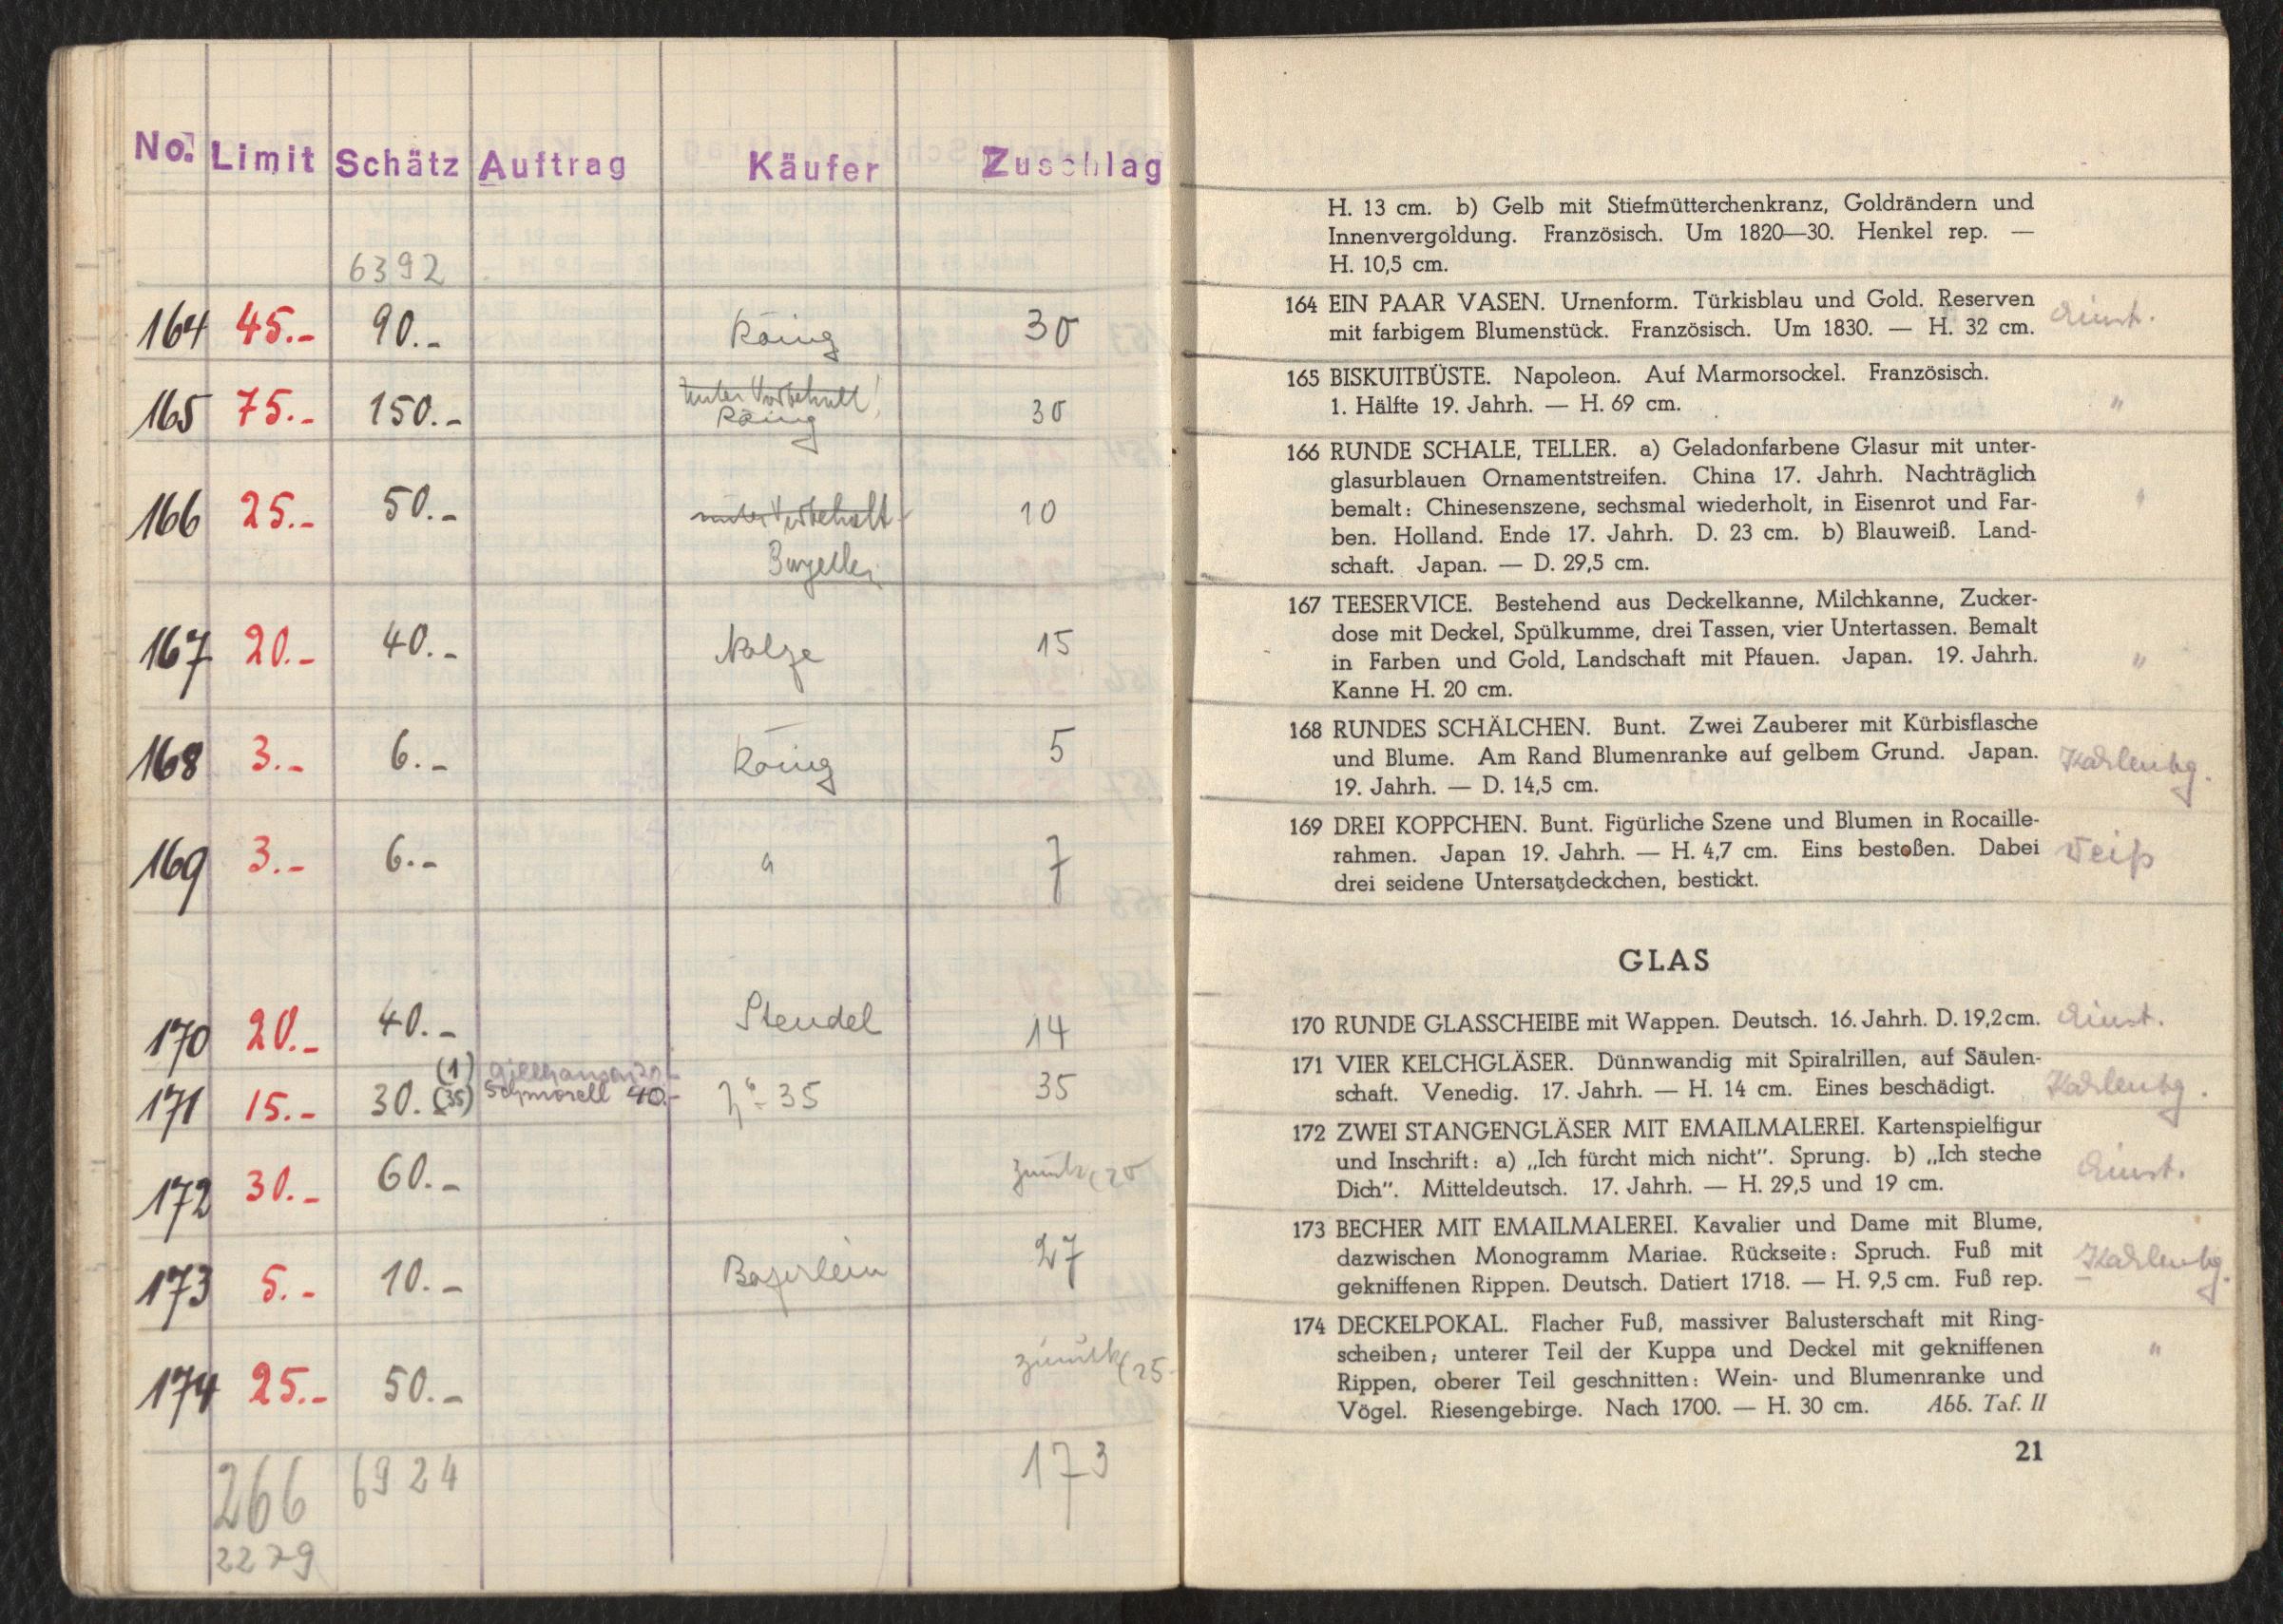 No. Limit Schätz Auftrag Käufer Zuschlag
6392
164 45.- 90.- König 30
165 75.- 150.- unter Vorbehalt! König 30
166 25.- 50.- unter Vorbehalt 10
167 20.- 40.- Nolze 15
168 3.- 6.- König 5
169 3.- 6.- " 7
170 20.- 40.- Stendel 14
171 15.- 30. (35) Schmorell 40.- 35 35
(1)
172 30.- 60.- zurück (20
173 5.- 10.- Bayerlein 27
174 25.- 50.- zurück (25-
266 6924 173
2279
H. 13 cm. b) Gelb mit Stiefmütterchenkranz, Goldrändern und
Innenvergoldung. Französisch. Um 1820—30. Henkel rep. —
H. 10,5 cm.
164 EIN PAAR VASEN. Urnenform. Türkisblau und Gold. Reserven
mit farbigem Blumenstück. Französisch. Um 1830. — H. 32 cm.
165 BISKUITBÜSTE. Napoleon. Auf Marmorsockel. Französisch.
1. Hälfte 19. Jahrh. — H. 69 cm. "
166 RUNDE SCHALE, TELLER. a) Geladonfarbene Glasur mit unter-
glasurblauen Ornamentstreifen. China 17. Jahrh. Nachträglich
bemalt: Chinesenszene, sechsmal wiederholt, in Eisenrot und Far-
ben. Holland. Ende 17. Jahrh. D. 23 cm. b) Blauweiß. Land-
schaft. Japan. — D. 29,5 cm.
167 TEESERVICE. Bestehend aus Deckelkanne, Milchkanne, Zucker-
dose mit Deckel, Spülkumme, drei Tassen, vier Untertassen. Bemalt
in Farben und Gold, Landschaft mit Pfauen. Japan. 19. Jahrh. "
Kanne H. 20 cm.
168 RUNDES SCHÄLCHEN. Bunt. Zwei Zauberer mit Kürbisflasche
und Blume. Am Rand Blumenranke auf gelbem Grund. Japan. Karlenbg.
19. Jahrh. — D. 14,5 cm.
169 DREI KOPPCHEN. Bunt. Figürliche Szene und Blumen in Rocaille-
rahmen. Japan 19. Jahrh. — H. 4,7 cm. Eins bestoßen. Dabei Weiß
drei seidene Untersatzdeckchen, bestickt.
GLAS
170 RUNDE GLASSCHEIBE mit Wappen. Deutsch. 16. Jahrh. D. 19,2 cm.
171 VIER KELCHGLÄSER. Dünnwandig mit Spiralrillen, auf Säulen-
schaft. Venedig. 17. Jahrh. — H. 14 cm. Eines beschädigt. Karlenbg.
172 ZWEI STANGENGLÄSER MIT EMAILMALEREI. Kartenspielfigur
und Inschrift: a) „Ich fürcht mich nicht". Sprung. b) „Ich steche
Dich". Mitteldeutsch. 17. Jahrh. — H. 29,5 und 19 cm.
173 BECHER MIT EMAILMALEREI. Kavalier und Dame mit Blume,
dazwischen Monogramm Mariae. Rückseite: Spruch. Fuß mit Karlenbg.
gekniffenen Rippen. Deutsch. Datiert 1718. — H. 9,5 cm. Fuß rep.
174 DECKELPOKAL. Flacher Fuß, massiver Balusterschaft mit Ring-
scheiben; unterer Teil der Kuppa und Deckel mit gekniffenen "
Rippen, oberer Teil geschnitten: Wein- und Blumenranke und
Vögel. Riesengebirge. Nach 1700. — H. 30 cm. Abb. Taf. II
21